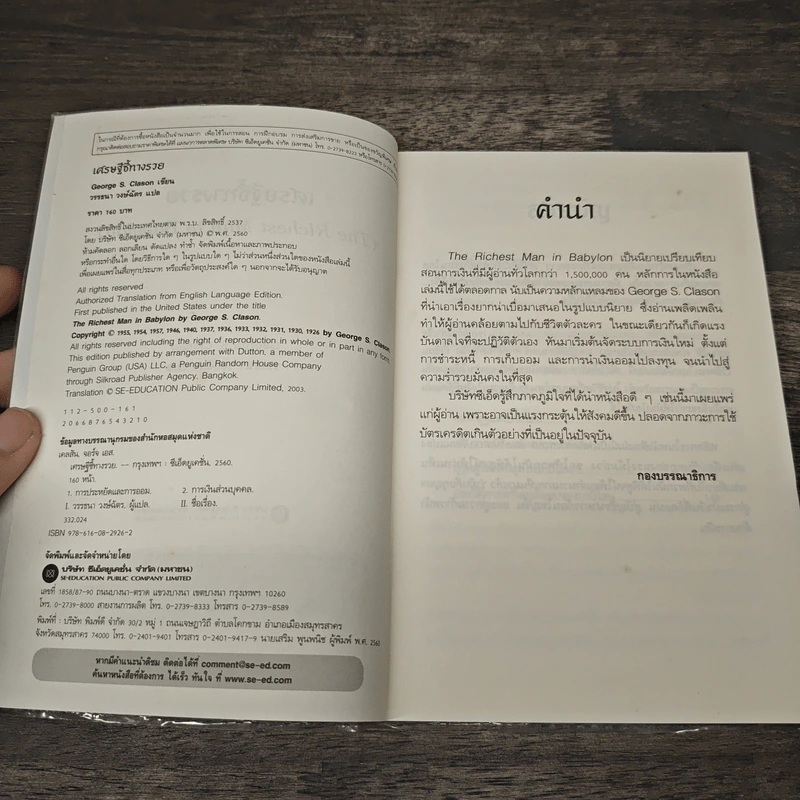 ในกรณีที่ต้องการซื้อหนังสือเป็นจำนวนมาก เพื่อใช้ในการสอน การฝึกอบรม การส่งเสริมการขาย หรือเป็นของขวัญพิเศษ
กรุณาติดต่อสอบถามราคาพิเศษได้ที่ แผนกการตลาดพิเศษ บริษัท ซีเอ็ดยูเคชั่น จำกัด (มหาชน) โทร. 0-2739-8222
เศรษฐีชี้ทางรวย
George S. Clason เขียน
วรรธนา วงษ์ฉัตร แปล
ราคา 160 บาท
สงวนลิขสิทธิ์ในประเทศไทยตาม พ.ร.บ. ลิขสิทธิ์ 2537
โดย บริษัท ซีเอ็ดยูเคชั่น จำกัด (มหาชน) © พ.ศ. 2560
ห้ามคัดลอก ลอกเลียน ดัดแปลง ทำซ้ำ จัดพิมพ์เนื้อหาและภาพประกอบ
หรือกระทำอื่นใด โดยวิธีการใด ๆ ในรูปแบบใด ๆ ไม่ว่าส่วนหนึ่งส่วนใดของหนังสือเล่มนี้
เพื่อเผยแพร่ในสื่อทุกประเภท หรือเพื่อวัตถุประสงค์ใด ๆ นอกจากจะได้รับอนุญาต
All rights reserved
Authorized Translation from English Language Edition.
First published in the United States under the title
The Richest Man in Babylon by George S. Clason.
Copyright © 1955, 1954, 1957, 1946, 1940, 1937, 1936, 1933, 1932, 1931, 1930, 1926 by George S. Clason
All rights reserved including the right of reproduction in whole or in part in any form.
This edition published by arrangement with Dutton, a member of
Penguin Group (USA) LLC, a Penguin Random House Company
through Silkroad Publisher Agency, Bangkok.
Translation © SE-EDUCATION Public Company Limited, 2003.
112-500-161
2066876543210
ข้อมูลทางบรรณานุกรมของสำนักหอสมุดแห่งชาติ
เคลสัน, จอร์จ เอส.
เศรษฐีชี้ทางรวย. -- กรุงเทพฯ : ซีเอ็ดยูเคชั่น, 2560.
160 หน้า.
1. การประหยัดและการออม. 2. การเงินส่วนบุคคล.
I. วรรธนา วงษ์ฉัตร, ผู้แปล. II. ชื่อเรื่อง.
332.024
ISBN 978-616-08-2926-2
จัดพิมพ์และจัดจำหน่ายโดย
บริษัท ซีเอ็ดยูเคชั่น จำกัด (มหาชน)
SE-EDUCATION PUBLIC COMPANY LIMITED
เลขที่ 1858/87-90 ถนนบางนา-ตราด แขวงบางนา เขตบางนา กรุงเทพฯ 10260
โทร. 0-2739-8000 สายงานการผลิต โทร. 0-2739-8333 โทรสาร 0-2739-8589
พิมพ์ที่ : บริษัท พิมพ์ดี จำกัด 30/2 หมู่ 1 ถนนเจษฎาวิถี ตำบลโคกขาม อำเภอเมืองสมุทรสาคร
จังหวัดสมุทรสาคร 74000 โทร. 0-2401-9401 โทรสาร 0-2401-9417-9 นายเสริม พูนพนิช ผู้พิมพ์ พ.ศ. 2560
หากมีคำแนะนำติชม ติดต่อได้ที่ comment@se-ed.com
ค้นหาหนังสือที่ต้องการ ได้เร็ว ทันใจ ที่ www.se-ed.com
คำนำ
The Richest Man in Babylon เป็นนิยายเปรียบเทียบ
สอนการเงินที่มีผู้อ่านทั่วโลกกว่า 1,500,000 คน หลักการในหนังสือ
เล่มนี้ใช้ได้ตลอดกาล นับเป็นความหลักแหลมของ George S. Clason
ที่นำเอาเรื่องยากน่าเบื่อมาเสนอในรูปแบบนิยาย ซึ่งอ่านเพลิดเพลิน
ทำให้ผู้อ่านคล้อยตามไปกับชีวิตตัวละคร ในขณะเดียวกันก็เกิดแรง
บันดาลใจที่จะปฏิวัติตัวเอง หันมาเริ่มต้นจัดระบบการเงินใหม่ ตั้งแต่
การชำระหนี้ การเก็บออม และการนำเงินออมไปลงทุน จนนำไปสู่
ความร่ำรวยมั่นคงในที่สุด
บริษัทซีเอ็ดรู้สึกภาคภูมิใจที่ได้นำหนังสือดี ๆ เช่นนี้มาเผยแพร่
แก่ผู้อ่าน เพราะอาจเป็นแรงกระตุ้นให้สังคมดีขึ้น ปลอดจากภาวะการใช้
บัตรเครดิตเกินตัวอย่างที่เป็นอยู่ในปัจจุบัน
กองบรรณาธิการ